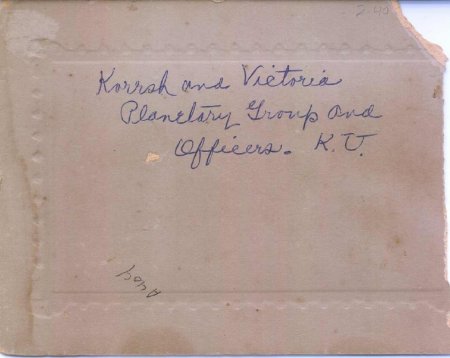 2.40
Korrsh and Victoria
Planetary Group and
Officers. K.U.